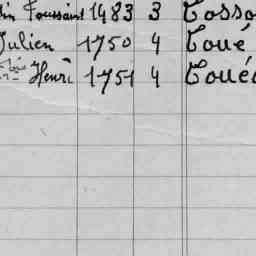 in Toussaint 1483 3 Tosso
Julien 1750 4 Toué
Henri 1751 4 Toué